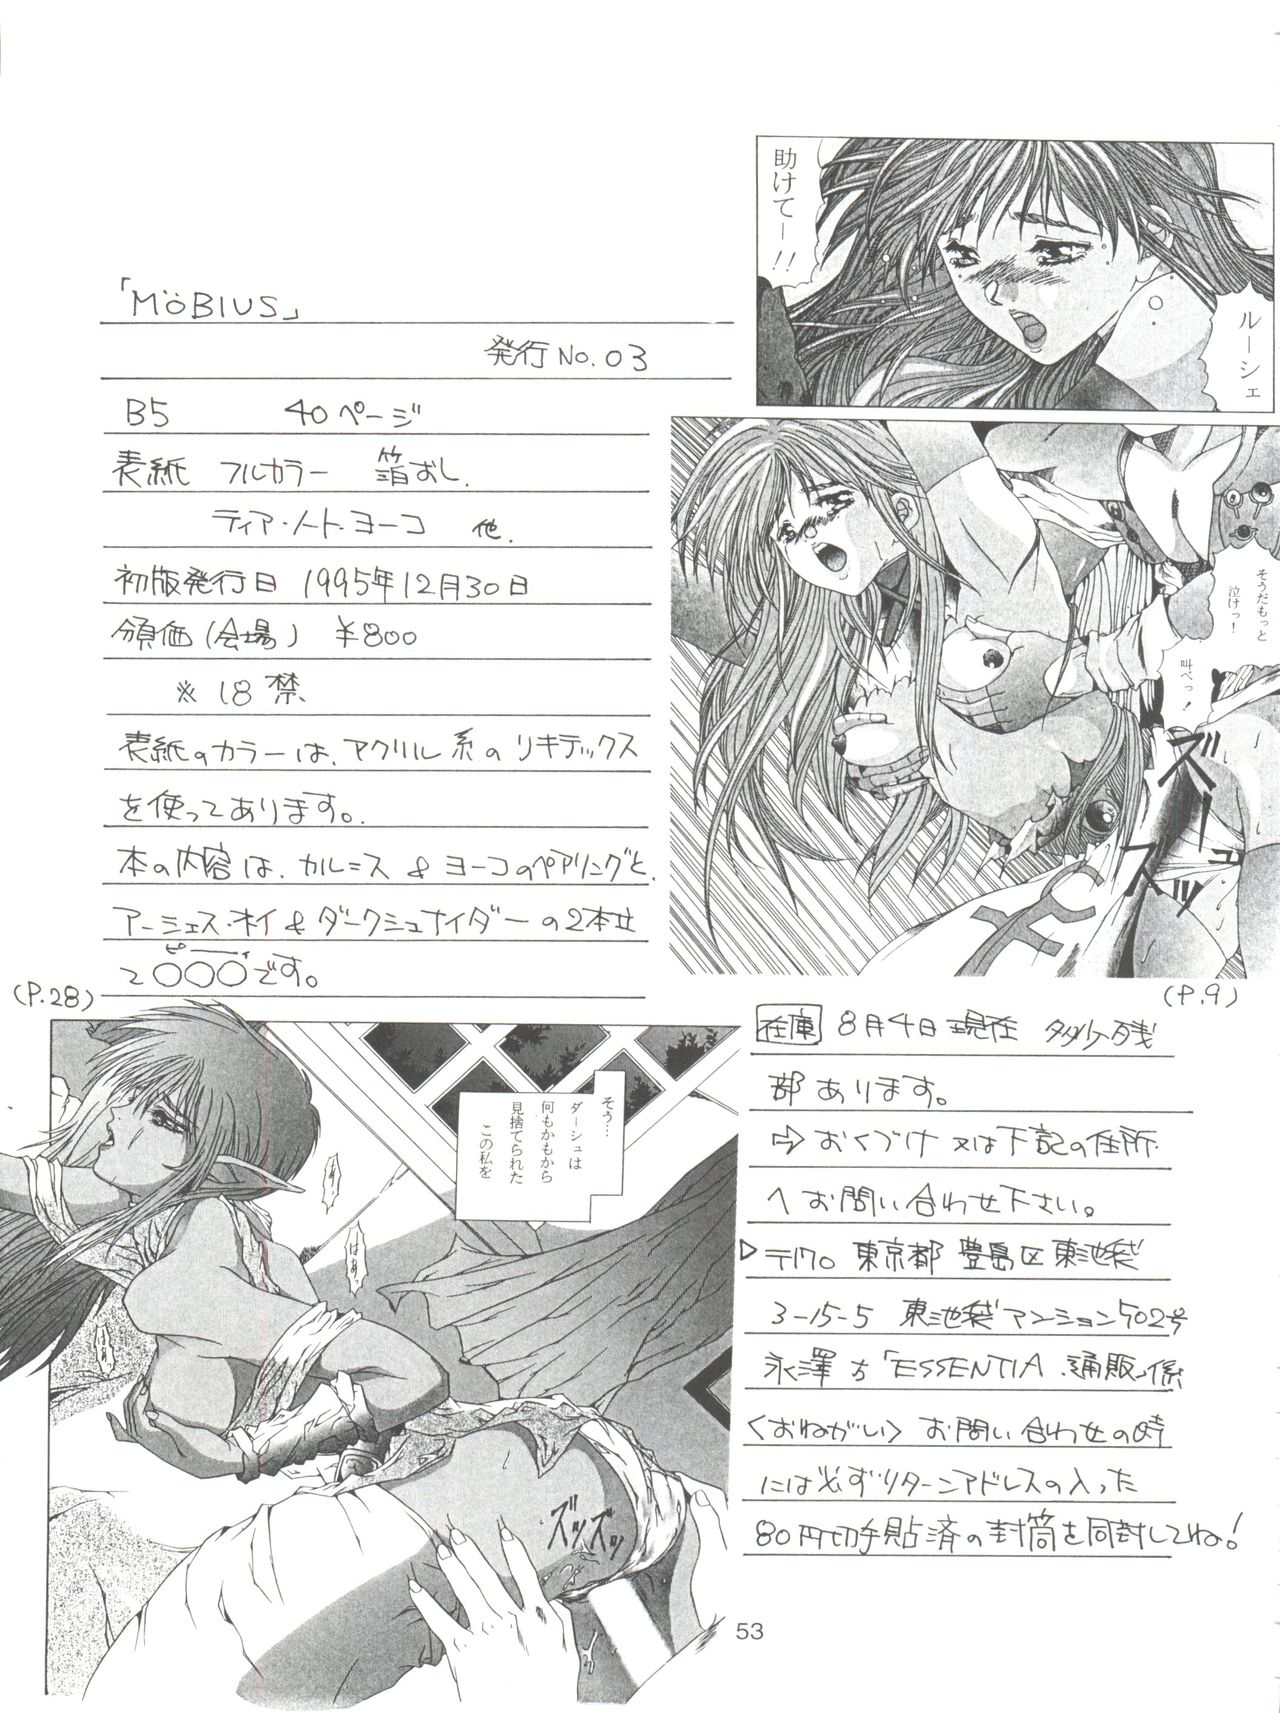 「MöBIUS」
発行 No. 03
B5 40ページ
表紙 フルカラー 箔おし.
ティア・ノート・ヨーコ 他.
初版発行日 1995年12月30日
頒価(会場) ¥800
※18禁
表紙のカラーは、アクリル系のリキテックス
を使ってあります。
本の内容は、カルニス & ヨーコのペアリングと、
アーシェス・ネイ & ダークシュナイダーの2本立
ピー
て〇〇〇です。
(P.28)
助けてー!!
ルーシェ
そうだもっと
泣けっ!
叫べっ!
ズズーッ
ズュッ
(P.9)
そう…
ダーシュは
何もかもから
見捨てられた
この私を
あっ
はあっ
はあっ
ズッズッ
在庫 8月4日現在 多少残
部あります。
⇨おくづけ 又は下記の住所
へお問い合わせ下さい。
▷〒170 東京都 豊島区 東池袋
3-15-5 東池袋マンション502号
永澤方「ESSENTIA」通販係
<おねがい> お問い合わせの時
には必ずリターンアドレスの入った
80円切手貼済の封筒を同封してね!
53